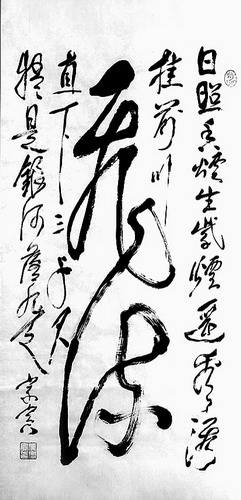 日照香爐生紫煙遙看瀑布
挂前川
飛流
直下三千尺
疑是銀河落九天